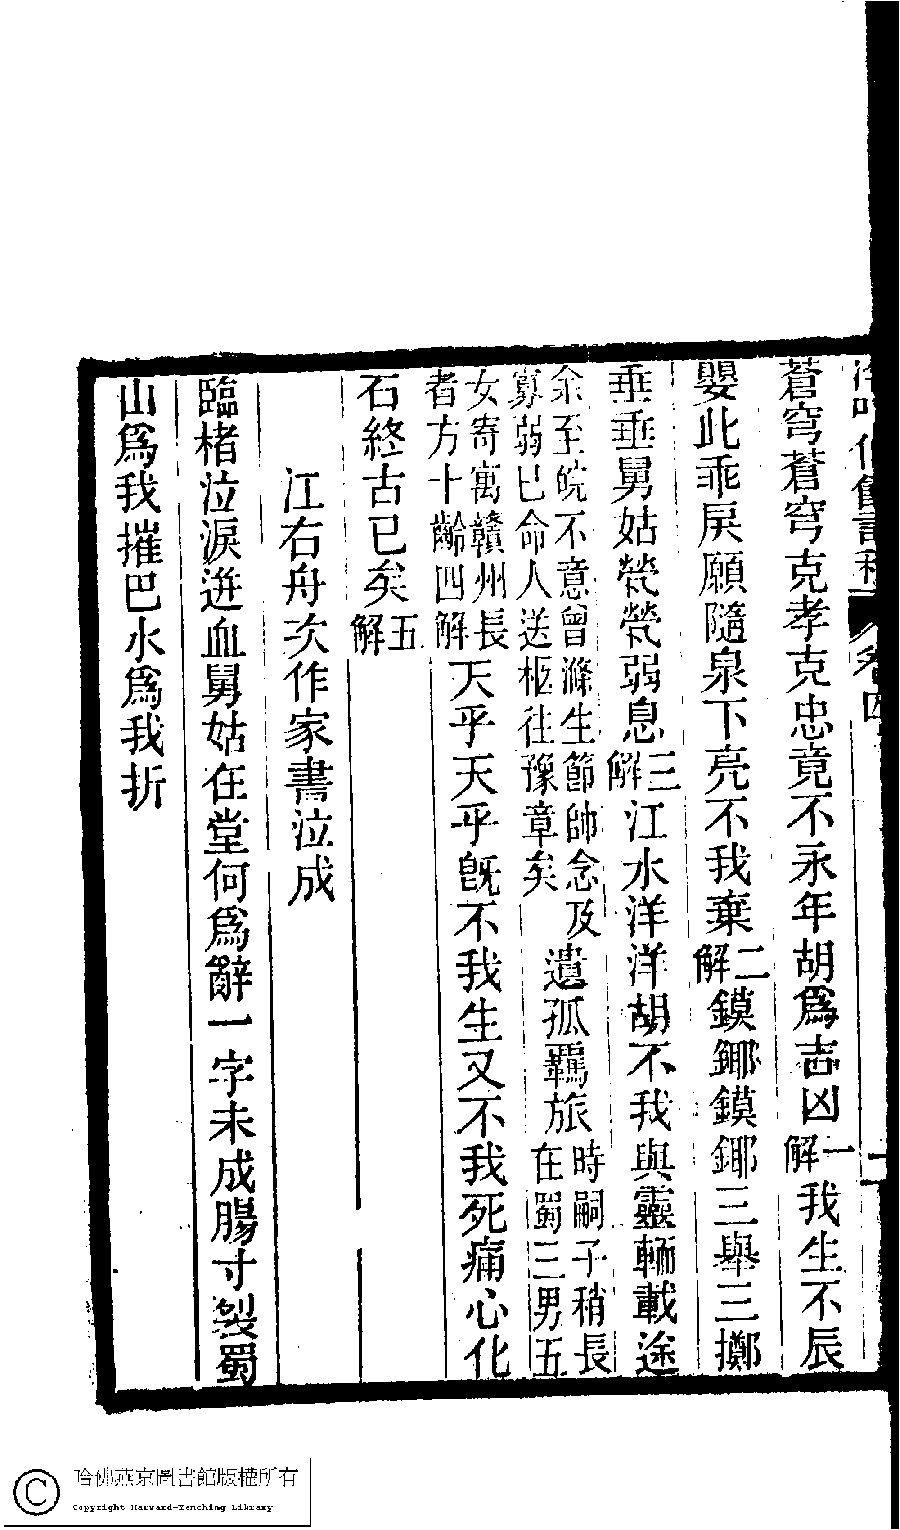 冷吟仙館詩稿 卷四
蒼穹蒼穹克孝克忠竟不永年胡爲吉凶一解我生不辰
嬰此乖戾願隨泉下亮不我棄二解鏌鎁鏌鎁三舉三擲
垂垂舅姑煢煢弱息三解江水洋洋胡不我與靈輀載途
余至皖不意曾滌生節帥念及寡弱已命人送柩往豫章矣遺孤羈旅時嗣子稍長在蜀三男五
女寄寓贛州長者方十齡四解天乎天乎旣不我生又不我死痛心化
石終古已矣五解
江右舟次作家書泣成
臨楮泣淚迸血舅姑在堂何爲辭一字未成腸寸裂蜀
山爲我摧巴水爲我折
哈佛燕京圖書館版權所有
Copyright Harvard-Yenching Library